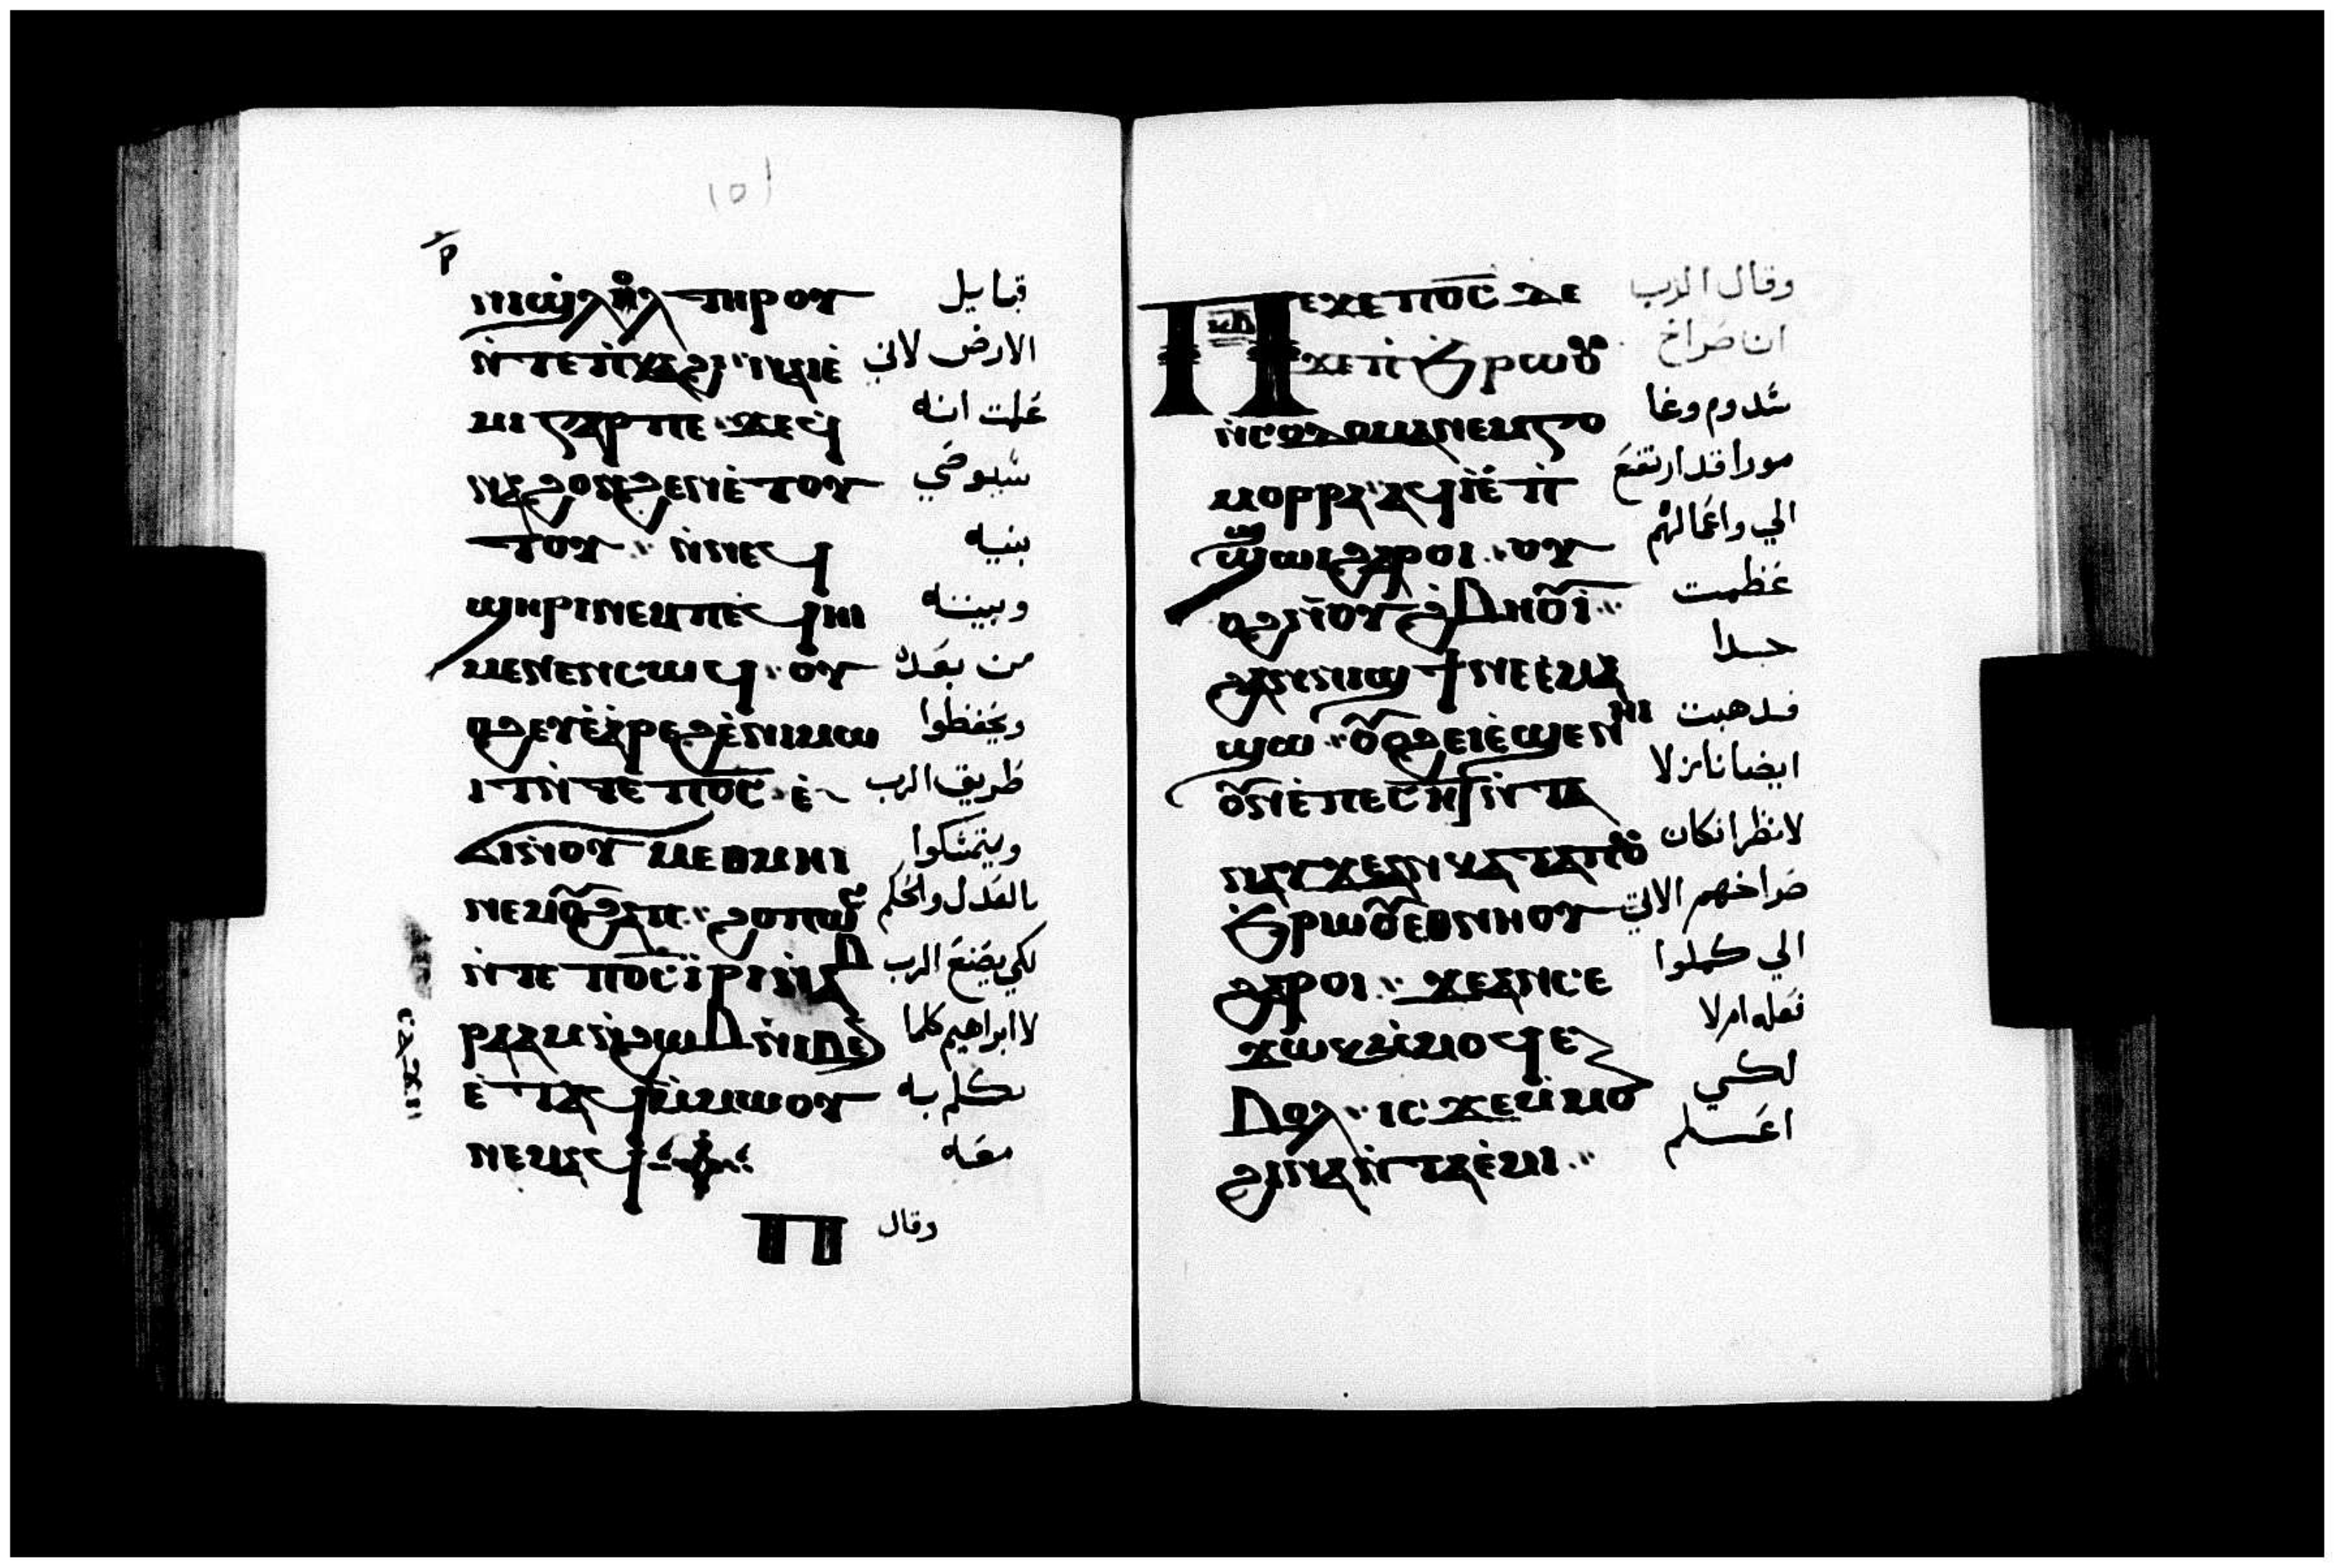 ⲣ̄
ⲛⲓϣⲗⲟⲗ ⲧⲏⲣⲟⲩ قبايل
ⲛ̀ⲧⲉ ⲡ̀ⲕⲁϩⲓ ⲛⲁⲓⲉ̀ الارض لاني
ⲙⲓ ⲅⲁⲣ ⲡⲉ ϫⲉϥ علمت انه
ⲛⲁϩⲟⲛϩⲉⲛ ⲉ̀ⲧⲟⲩ سيوصي
ⲧⲟⲩ ⲛ̀ⲛⲉϥ بنيه
ϣⲏⲣⲓ ⲛⲉⲙ ⲡⲉϥⲏⲓ وبيته
ⲙⲉⲛⲉⲛⲥⲱϥ ⲟⲩ من بعده
ⲟϩ ⲉⲩⲉ̀ⲁ̀ⲣⲉϩ ⲉ̀ⲛⲓⲙⲱ ويحفظوا
ⲓⲧ ⲛ̀ⲧⲉ ⲡⲟ̅ⲥ̅ ⲉ̀ طريق الرب
ⲙⲉⲑⲙⲏⲓ ويتمسكوا
ⲛⲉⲙ ⲟⲩϩⲁⲡ ϩⲟⲡⲱⲥ بالعدل والحكم
ⲛ̀ⲧⲉ ⲡⲟ̅ⲥ̅ ⲓⲣⲓ ⲛ̀ⲁⲃ لكي يصنع الرب
ⲣⲁⲁⲙ ⲛ̀ϩⲱⲃ ⲛⲓⲃⲉⲛ لابراهيم كلما
ⲙ̀ⲙⲱⲟⲩ تكلم به
ⲛⲉⲙⲁϥ معه
Ⲡ وقال
ⲡⲉϫⲉ ⲡⲟ̅ⲥ̅ ⲇⲉ وقال الرب
ϫⲉ ⲡ̀ϧⲣⲱⲟⲩ ان صراخ
ⲛ̀ⲥⲟⲇⲟⲙⲁ ⲛⲉⲙ ⲅⲟ سدوم وغا
ⲙⲟⲣⲣⲁ ⲁϥⲓ̀ ⲉ̀ⲡ̀ مورا قد ارتفع
ϣⲱⲓ ϩⲁⲣⲟⲓ ⲟⲩ الي واعمالهم
ⲟϩ ⲛⲟⲩϩⲃⲏⲟⲩⲓ̀ عظمت
ϩⲁⲛⲛⲓϣϯ ⲛⲉ ⲉ̀ⲙⲁ جدا
ϣⲱ ⲟⲩⲟϩ ⲉⲓⲉ̀ϣⲉⲛⲏⲓ فذهبت
ⲟⲩⲛ ⲉ̀ⲡⲉⲥⲏⲧ ⲛ̀ⲧⲁ ايضا نازلا
ⲛⲁⲩ ϫⲉ ⲁⲛ ⲕⲁⲧⲁ ⲡⲟⲩ لانظر ان كان
ϧⲣⲱⲟⲩ ⲉⲑⲛⲏⲟⲩ صراخهم الاتي
ϩⲁⲣⲟⲓ ϫⲉ ⲁⲛ ⲥⲉ الي كملوا
ϫⲱⲕ ⲙ̀ⲙⲟϥ ⲉ فعله ام لا
ⲃⲟⲗ ⲓⲥϫⲉ ⲙ̀ⲙⲟⲛ لكي
ϩⲓⲛⲁ ⲛ̀ⲧⲁⲉ̀ⲙⲓ اعلم